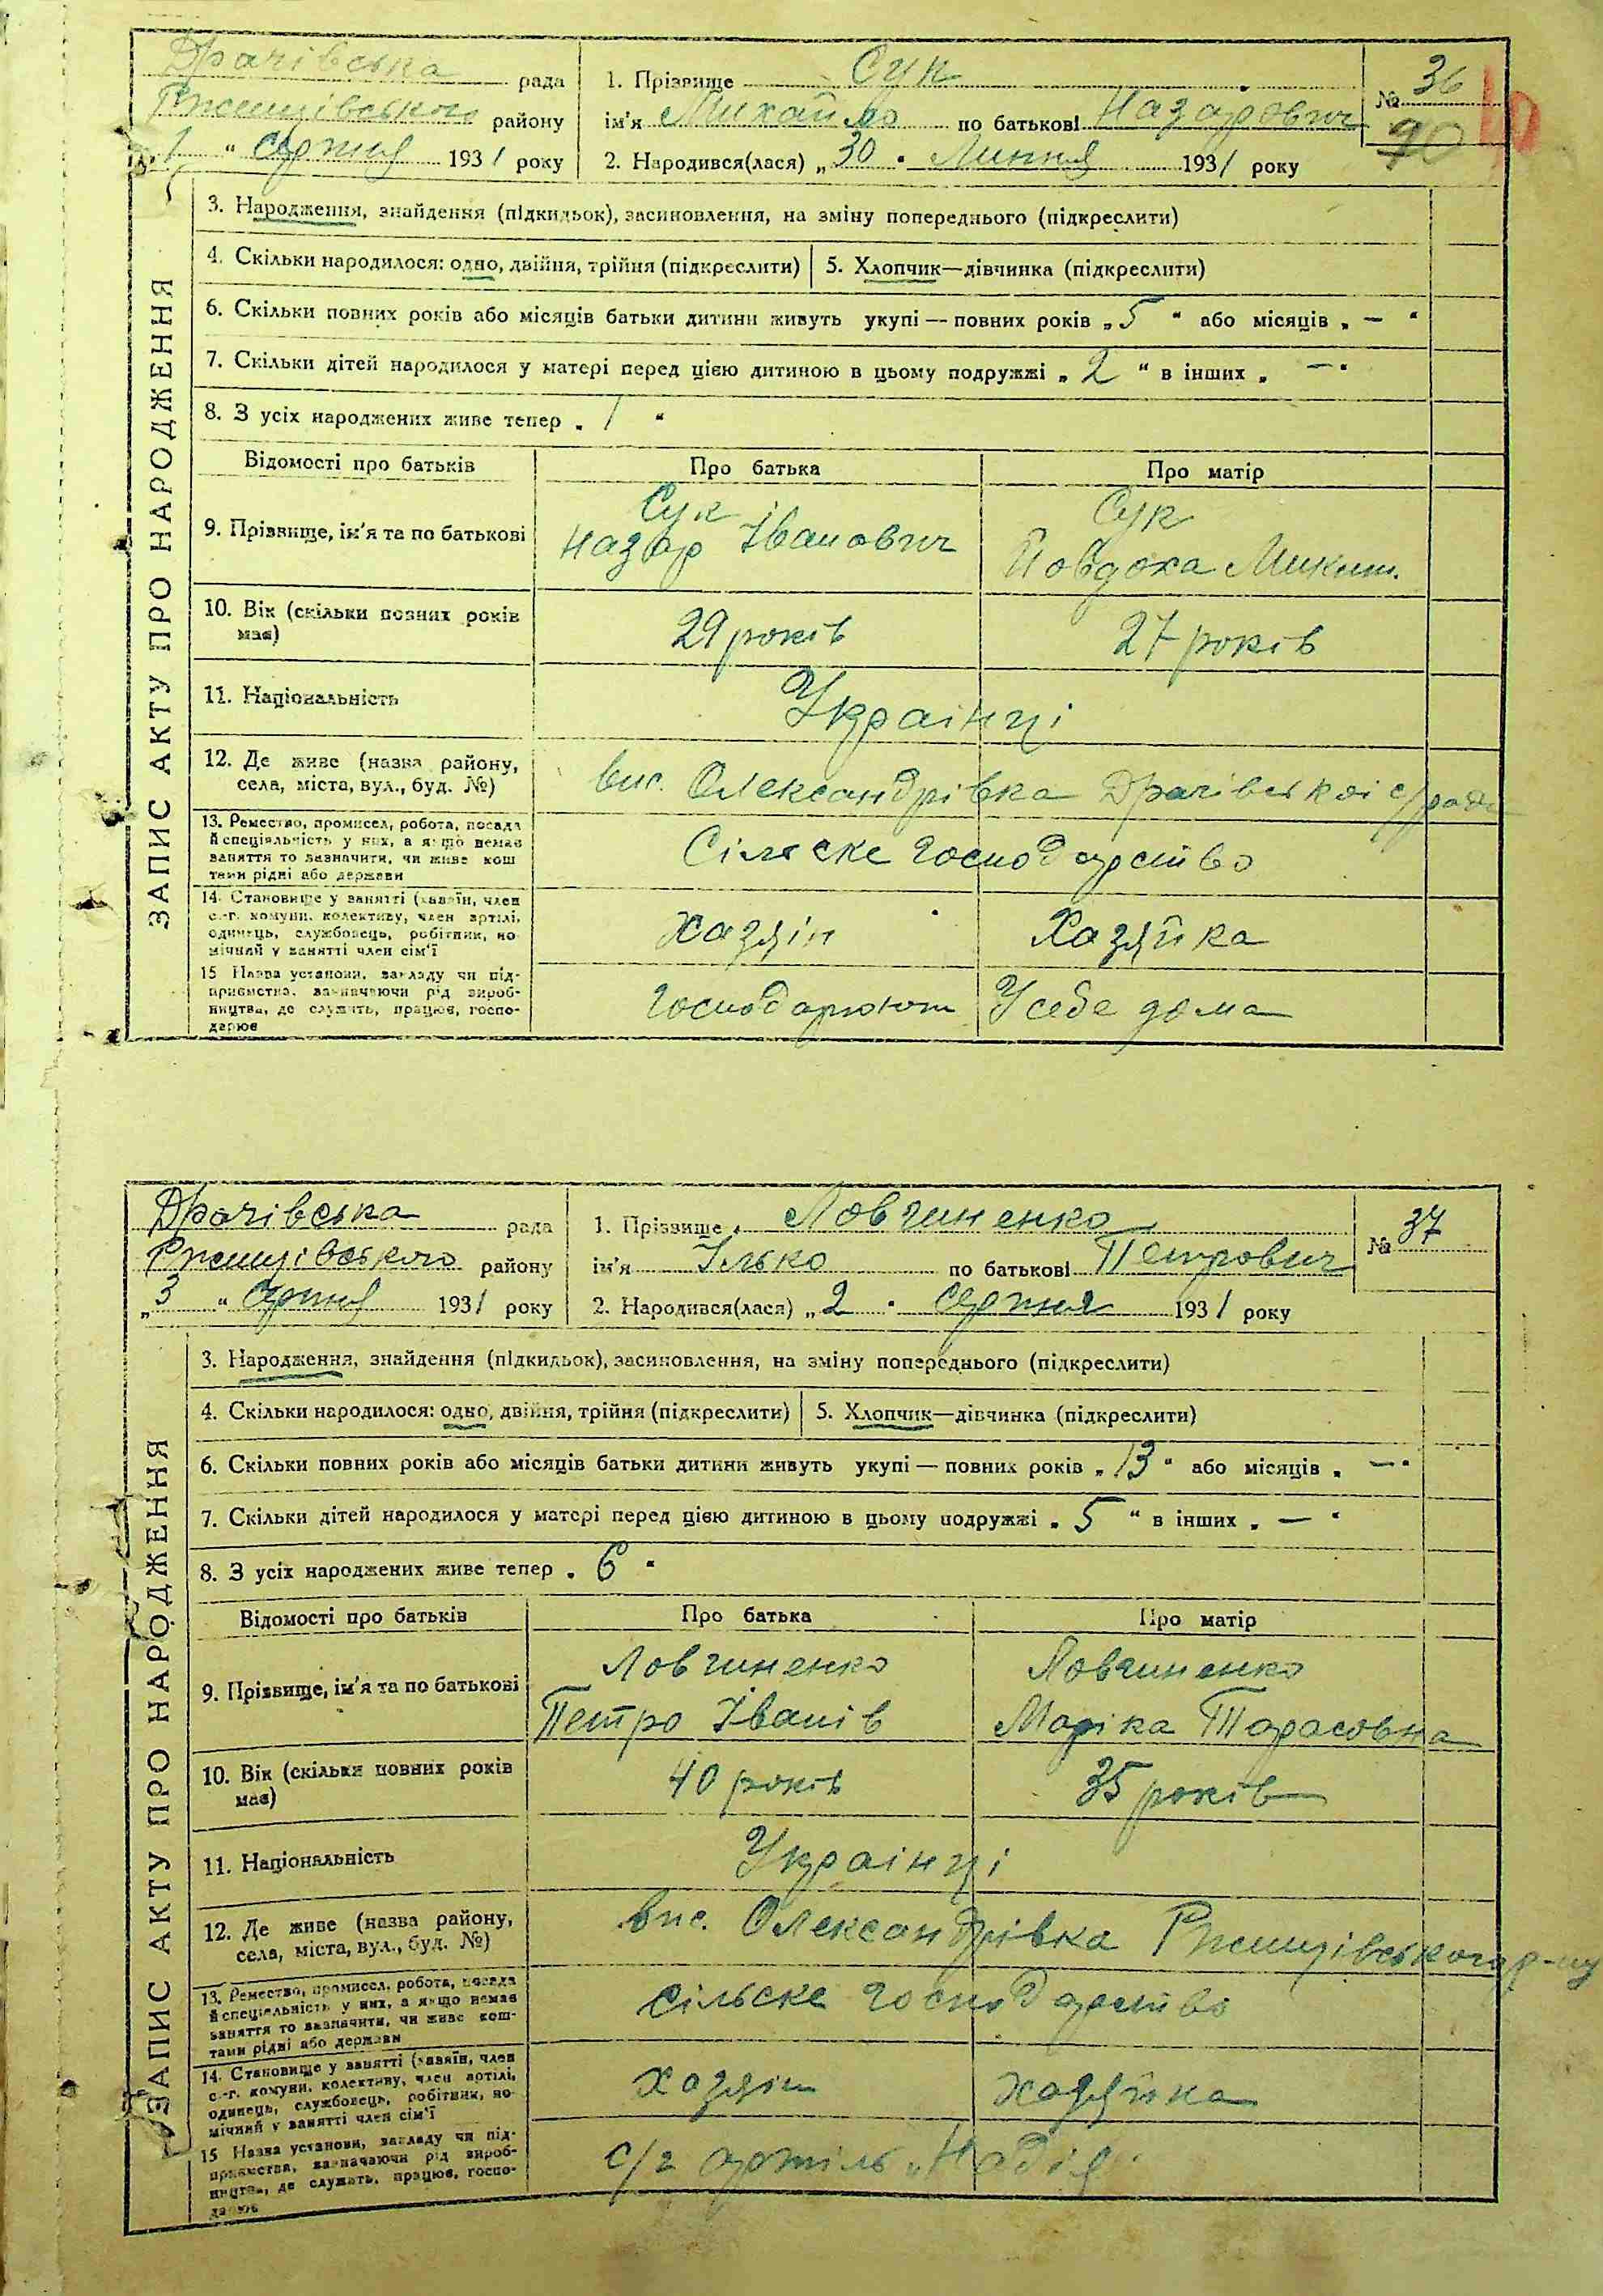 Драчівська рада
Ржищівського району
„ 1 “ серпня 1931 року
1. Прізвище Сук
ім'я Михайло по батькові Назарович
2. Народився(лася) „ 30 " Липня 1931 року
№ 36
90
ЗАПИС АКТУ ПРО НАРОДЖЕННЯ
3. Народження, знайдення (підкидьок), засиновлення, на зміну попереднього (підкреслити)
4. Скільки народилося: одно, двійня, трійня (підкреслити) 5. Хлопчик—дівчинка (підкреслити)
6. Скільки повних років або місяців батьки дитини живуть укупі — повних років „ 5 “ або місяців „ — “
7. Скільки дітей народилося у матері перед цією дитиною в цьому подружжі „ 2 “ в інших „ — “
8. З усіх народжених живе тепер „ 1 “
Відомості про батьків Про батька Про матір
9. Прізвище, ім'я та по батькові
Сук
Назар Іванович
Сук
Йовдоха Микит.
10. Вік (скільки повних років має) 29 років 27 років
11. Національність Українці
12. Де живе (назва району,
села, міста, вул., буд. №)
вис. Олександрівка Драчівської с/ради
13. Ремество, промисел, робота, посада
й спеціяльність у них, а якщо немає
заняття то зазначити, чи живе кош
тами рідні або держави
Сільське господарство
14. Становище у занятті (хазяїн, член
с.-г. комуни, колективу, член артілі,
одинець, службовець, робітник, по
мічний у занятті член сім'ї
хазяїн Хазяйка
15 Назва установи, закладу чи під-
приємства, зазначаючи рід вироб-
ництва, де служить, працює, госпо-
дарює
господарюют У себе дома
Драчівська рада
Ржищівського району
„ 3 “ серпня 1931 року
1. Прізвище Ловчиненко
ім'я Ілько по батькові Петрович
2. Народився(лася) „ 2 " серпня 1931 року
№ 37
ЗАПИС АКТУ ПРО НАРОДЖЕННЯ
3. Народження, знайдення (підкидьок), засиновлення, на зміну попереднього (підкреслити)
4. Скільки народилося: одно, двійня, трійня (підкреслити) 5. Хлопчик—дівчинка (підкреслити)
6. Скільки повних років або місяців батьки дитини живуть укупі — повних років „ 13 “ або місяців „ — “
7. Скільки дітей народилося у матері перед цією дитиною в цьому подружжі „ 5 “ в інших „ — “
8. З усіх народжених живе тепер „ 6 “
Відомості про батьків Про батька Про матір
9. Прізвище, ім'я та по батькові
Ловчиненко
Петро Іванів
Ловчиненко
Маріка Тарасовна
10. Вік (скільки повних років має) 40 років 35 років
11. Національність Українці
12. Де живе (назва району,
села, міста, вул., буд. №)
вис. Олександрівка Ржищівського р-ну
13. Ремество, промисел, робота, посада
й спеціяльність у них, а якщо немає
заняття то зазначити, чи живе кош-
тами рідні або держави
сільське господарство
14. Становище у занятті (хазяїн, член
с.-г. комуни, колективу, член артілі,
одинець, службовець, робітник, по-
мічний у занятті член сім'ї
хазяїн хазяйка
15 Назва установи, закладу чи під-
приємства, зазначаючи рід вироб-
ництва, де служить, працює, госпо-
дарює
с/г артіль „Надія"